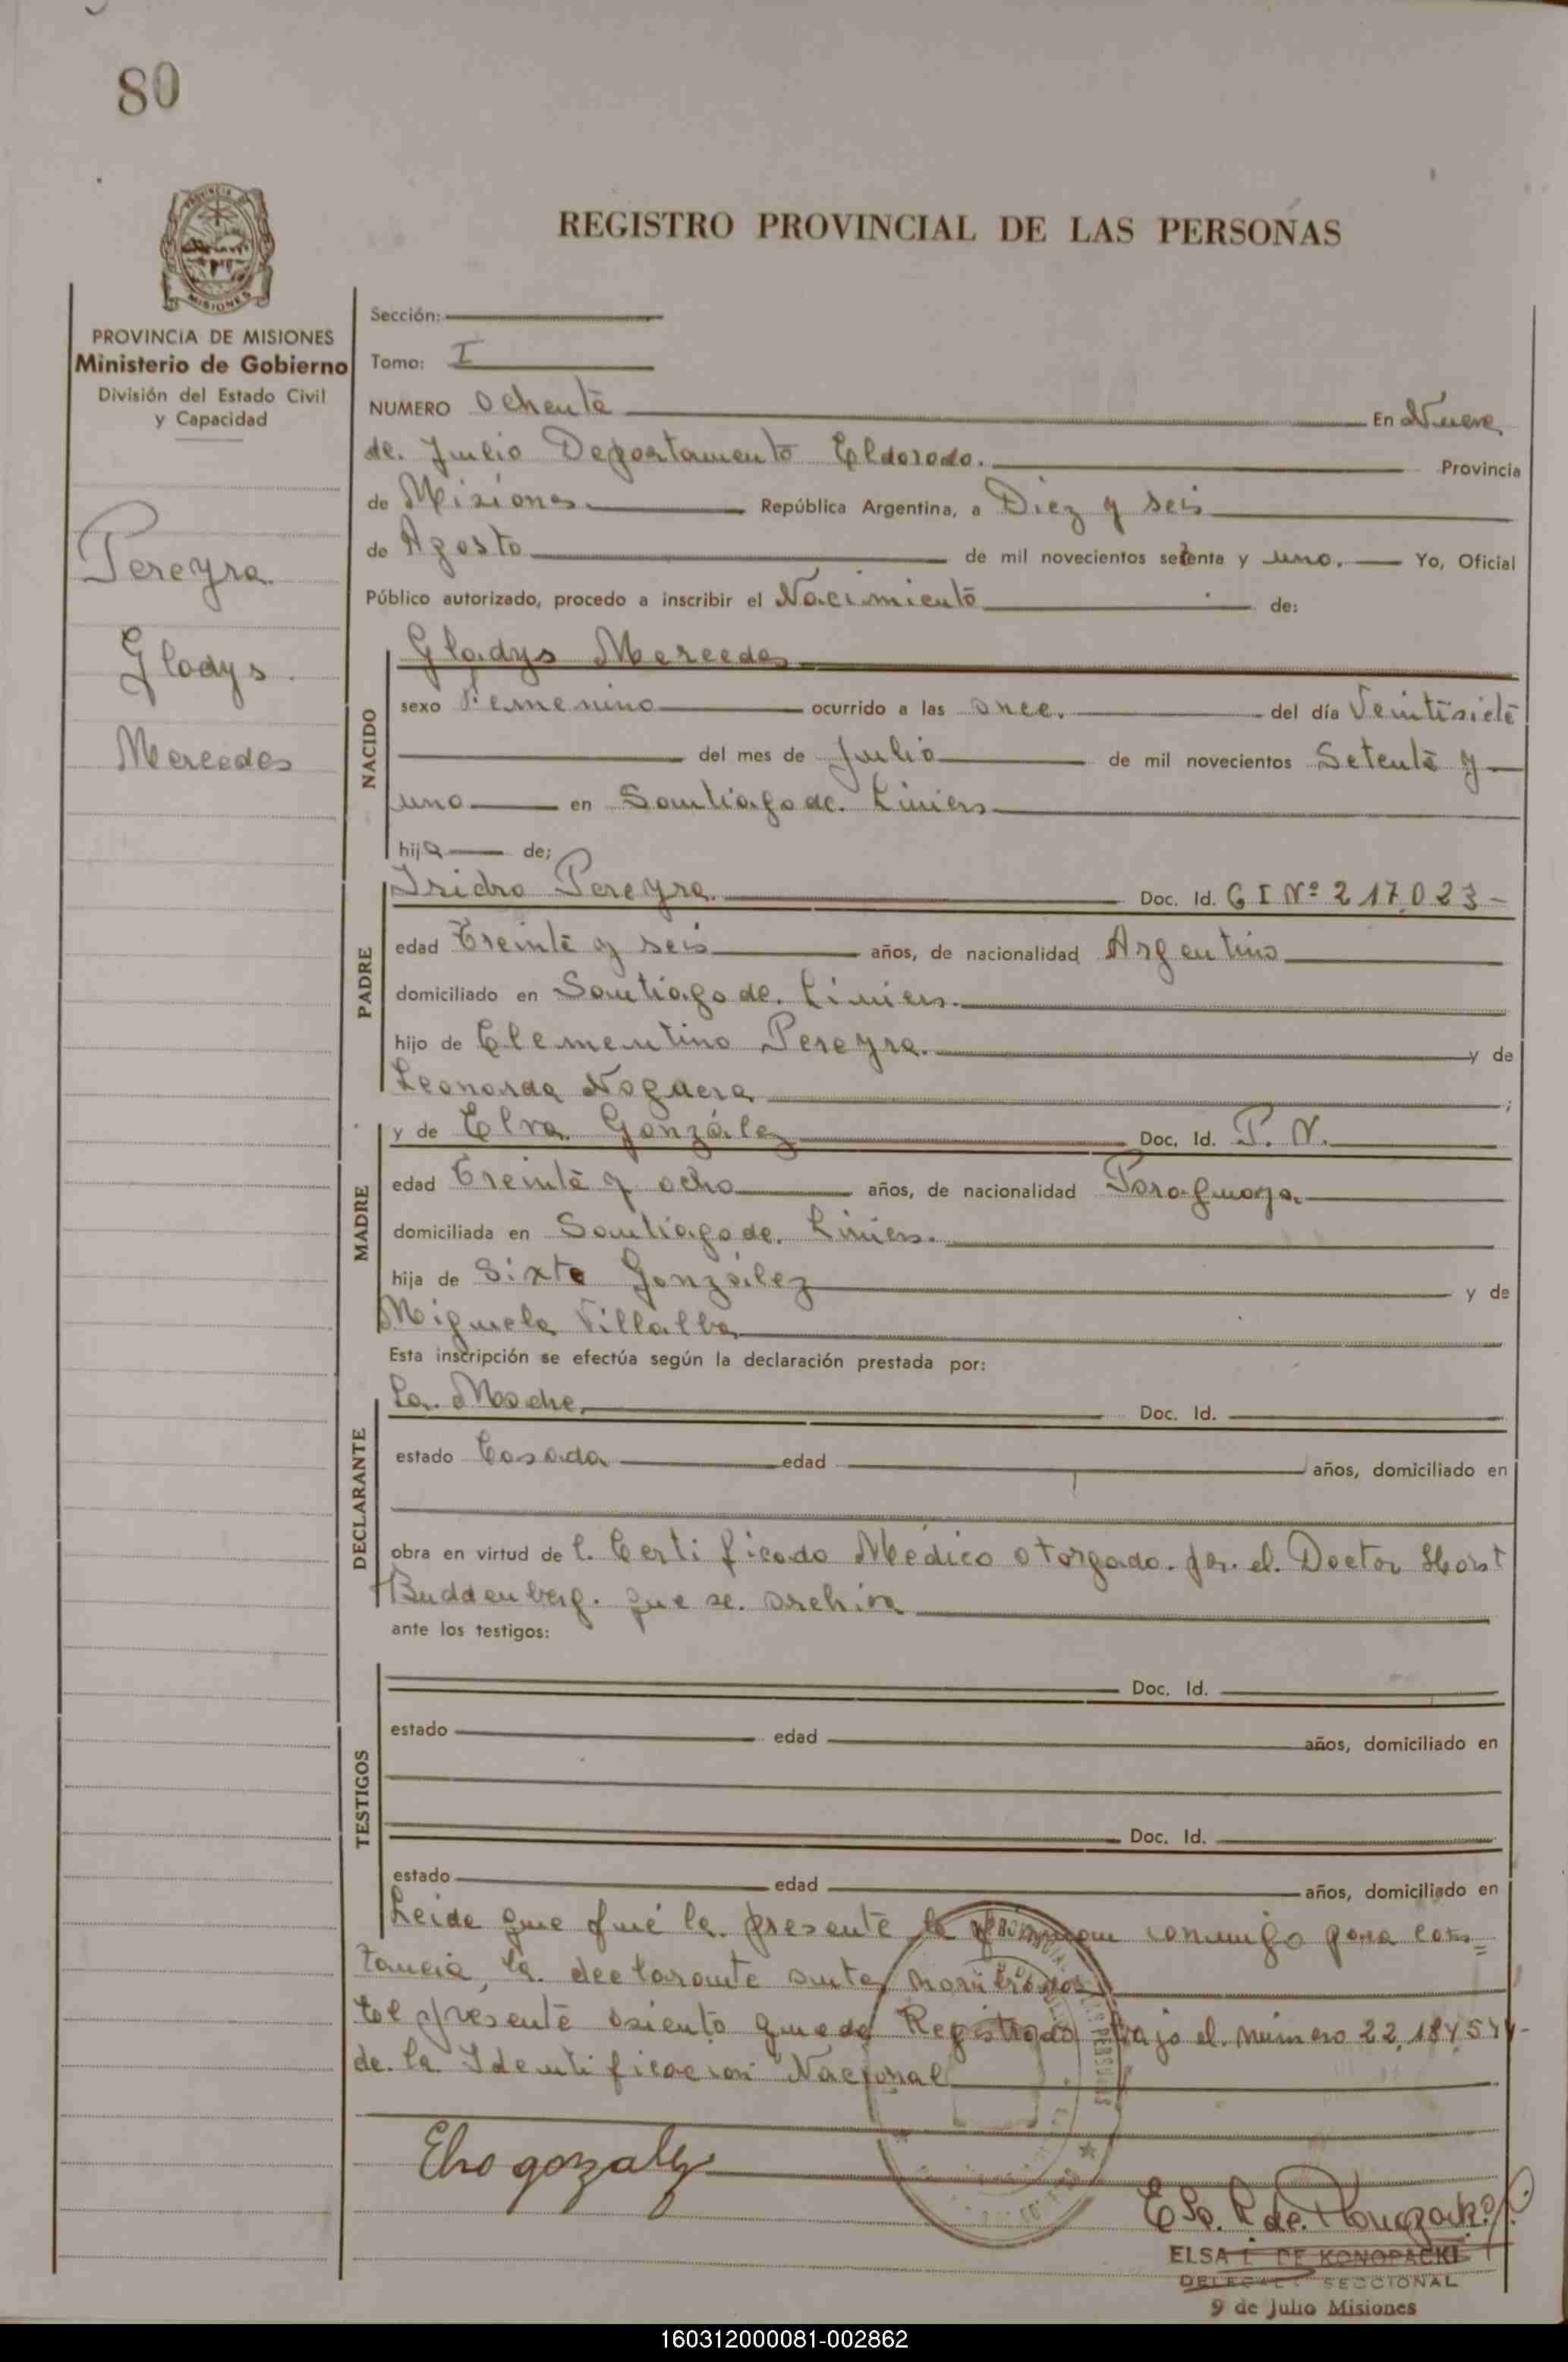 80
PROVINCIA DE
MISIONES
REGISTRO PROVINCIAL DE LAS PERSONAS
PROVINCIA DE MISIONES
Ministerio de Gobierno
División del Estado Civil
y Capacidad
Pereyra
Gladys
Mercedes
Sección:
Tomo: I
NUMERO Ochenta En Nueve
de Julio Departamento Eldorado. Provincia
de Misiones República Argentina, a Diez y seis
de Agosto de mil novecientos setenta y uno. Yo, Oficial
Público autorizado, procedo a inscribir el Nacimiento de:
NACIDO
Gladys Mercedes
sexo Femenino ocurrido a las once. del día Veintisiete
del mes de Julio de mil novecientos Setenta y
uno en Santiago de Liniers
hija de;
PADRE
Isidro Pereyra Doc. Id. C I Nº 217.023-
edad Treinta y seis años, de nacionalidad Argentino
domiciliado en Santiago de Liniers.
hijo de Clementino Pereyra. y de
Leonarda Noguera ;
MADRE
y de Elva González Doc. Id. P. N.
edad Treinta y ocho años, de nacionalidad Paraguaya.
domiciliada en Santiago de Liniers.
hija de Sixto González y de
Miguela Villalba
Esta inscripción se efectúa según la declaración prestada por:
DECLARANTE
La Madre. Doc. Id.
estado Casada edad años, domiciliado en
obra en virtud de l. Certificado Médico otorgado. por el. Doctor Horst
Buddenberg. que se archiva
ante los testigos:
TESTIGOS
Doc. Id.
estado edad años, domiciliado en
Doc. Id.
estado edad años, domiciliado en
Leida que fué la presente la firman conmigo para cons=
tancia, la declarante antes nombrados
El presente asiento queda Registrado bajo el número 22.184.544-
de la Identificacion Nacional
Elva gonzalez
ELSA I. DE KONOPACKI
DELEGADA SECCIONAL
9 de Julio Misiones
160312000081-002862